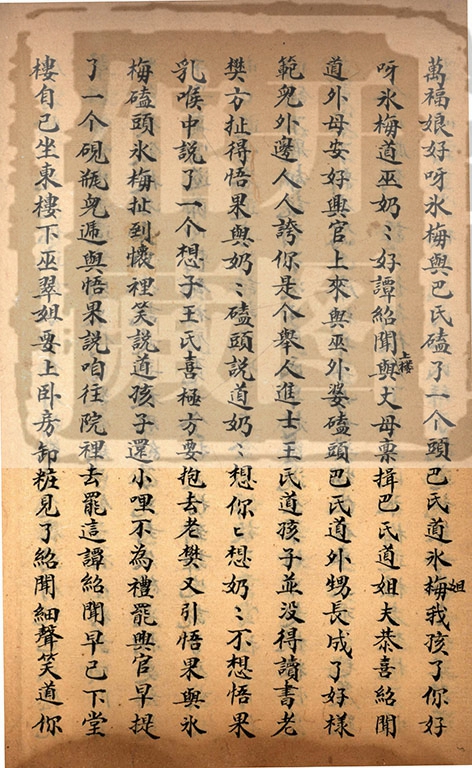 萬福娘好呀氷梅與巴氏磕了一个頭巴氏道氷梅姐我孩了你好
呀氷梅道巫奶〻好譚紹聞上樓與丈母禀揖巴氏道姐夫恭喜紹聞
道外母安好興官上來與巫外婆磕頭巴氏道外甥長成了好樣
範兒外邊人人誇你是个舉人進士王氏道孩子並没得讀書老
樊方扯得悟果與奶〻磕頭説道奶〻想你〻想奶〻不想悟果
乳喉中説了一个想子王氏喜極方要抱去老樊又引悟果與氷
梅磕頭氷梅扯到懷裡笑説道孩子還小哩不為禮罷興官早提
了一个硯瓶兒逓與悟果説咱往院裡去罷這譚紹聞早已下堂
樓自己坐東樓下巫翠姐要上卧房卸粧見了紹聞細聲笑道你